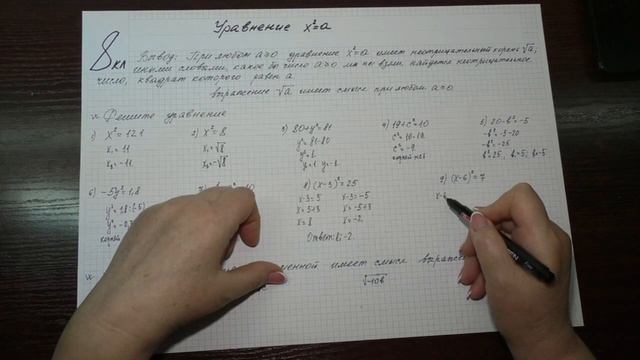 Уравнение x²=a
8 кл
Вывод: При любом a≥0 уравнение x²=a имеет неотрицательный корень √a,
иными словами, какое бы число a≥0 мы не взяли, найдётся неотрицательное
число, квадрат которого равен a
выражение √a имеет смысл при любом a≥0
Решите уравнение
1) x²=121
x₁=11
x₂=-11.
2) x²=8
x₁=√8
x₂=-√8
3) 80+y²=81
y²=81-80
y²=1.
y=1. y=-1.
4) 19+c²=10
c²=10-19
c²=-9
корней нет
5) 20-b²=-5
-b²=-5-20
-b²=-25
b²=25, b=5; b=-5
6) -5y²=1,8
y²=1,8:(-5)
корней
8) (x-3)²=25
x-3=5 x-3=-5
x=5+3 x=-5+3
x=8 x=-2.
Ответ: 8; -2.
9) (x-6)²=7
x-6
имеет смысл
√-10b